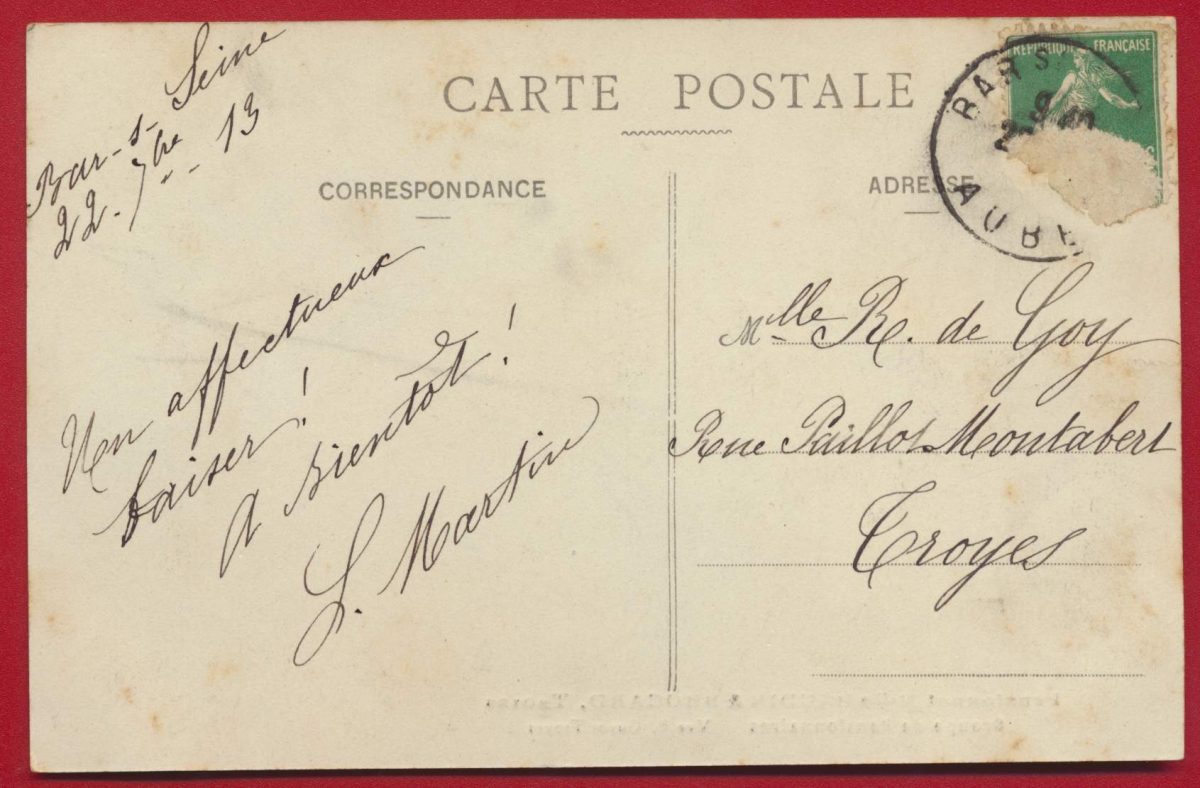 CARTE POSTALE
CORRESPONDANCE
ADRESSE
RÉPUBLIQUE FRANÇAISE
BAR S
9 40
AUBE
Bar-s-Seine
22. 7bre 13
Un affectueux
baiser!
A bientôt!
S. Martin
Mlle R. de Goy
Rue Paillot Montabert
Troyes